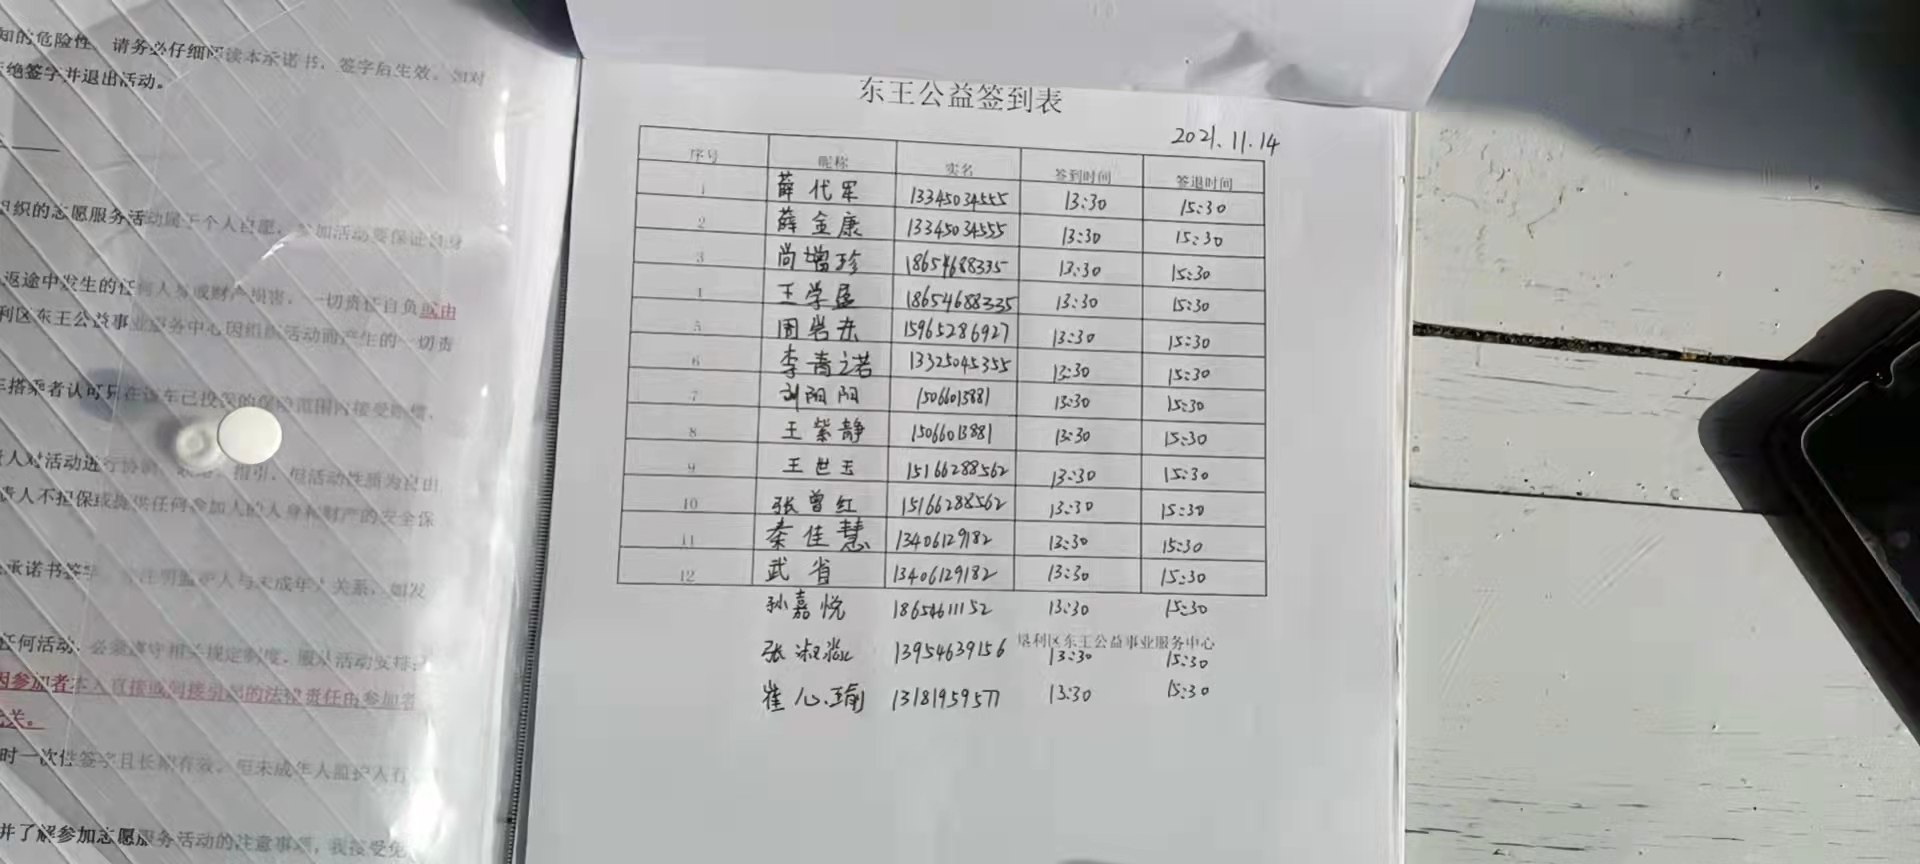 知的危险性 请务必仔细阅读本承诺书,签字后生效。如对
绝签字并退出活动。
组织的志愿服务活动属于个人自愿,参加活动要保证自身
返途中发生的任何人身或财产损害,一切责任自负或由
利区东王公益事业服务中心因组织活动而产生的一切责
搭乘者认可只在该车已投保的保险范围内接受赔偿,
责人对活动进行协调、联络、指引,但活动性质为自由
责人不担保或提供任何参加人的人身和财产的安全保
承诺书签字 注明监护人与未成年人关系,如发
任何活动,必须遵守相关规定制度,服从活动安排
因参加者本人直接或间接引起的法律责任由参加者
无关。
时一次性签字且长期有效。但未成年人监护人有
并了解参加志愿服务活动的注意事项,我接受免
东王公益签到表
2021.11.14
序号 昵称 实名 签到时间 签退时间
1 薛代军 13345034555 13:30 15:30
2 薛金康 13345034555 13:30 15:30
3 尚增珍 18654688335 13:30 15:30
4 王学 18654688335 13:30 15:30
5 周岩东 15965286927 13:30 15:30
6 李青诺 13325045355 13:30 15:30
7 刘阳阳 15066013881 13:30 15:30
8 王紫静 15066013881 13:30 15:30
9 王世玉 15166288562 13:30 15:30
10 张曾红 15166288562 13:30 15:30
11 秦佳慧 13406129182 13:30 15:30
12 武省 13406129182 13:30 15:30
孙嘉悦 18654611152 13:30 15:30
垦利区东王公益事业服务中心
张淑 13954639156 13:30 15:30
崔心瑜 13181959577 13:30 15:30